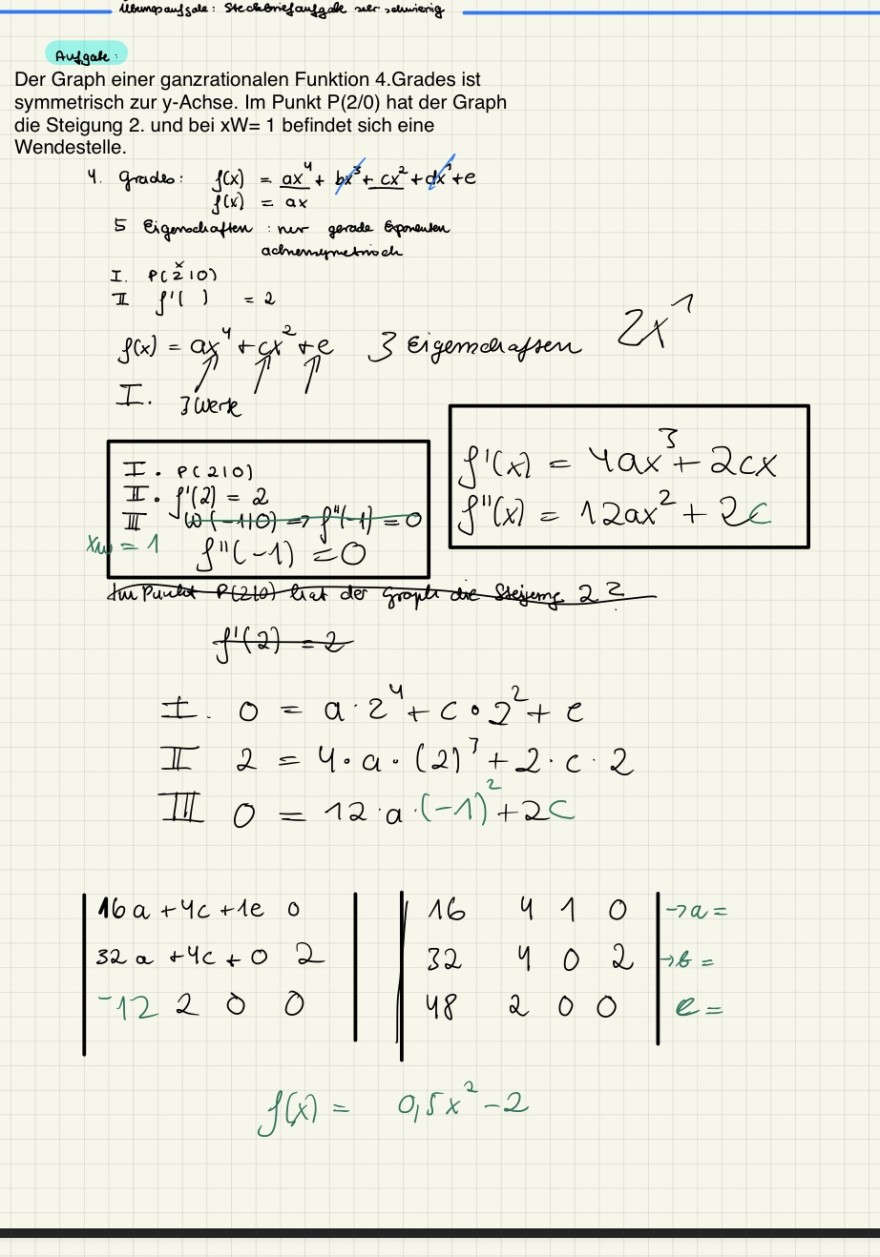 Übungsaufgabe: Steckbriefaufgabe sehr schwierig
Aufgabe:
Der Graph einer ganzrationalen Funktion 4.Grades ist
symmetrisch zur y-Achse. Im Punkt P(2/0) hat der Graph
die Steigung 2. und bei xW= 1 befindet sich eine
Wendestelle.
4. grades: f(x) = ax⁴ + bx³ + cx² + dx¹ + e
f(x) = ax
5 Eigenschaften : nur gerade Exponenten
I. P(2|0)
x
II f'( ) = 2
f(x) = ax⁴ + cx² + e 3 Eigenschaften 2x¹
I. 3 Werte
I. P(2|0)
II. f'(2) = 2
III W(-1|0) => f''(-1) = 0
xw = 1 f''(-1) = 0
f'(x) = 4ax³ + 2cx
f''(x) = 12ax² + 2c
Im Punkt P(2|0) hat der Graph die Steigung 2 ?
f'(2) = 2
I. 0 = a · 2⁴ + c · 2² + e
II 2 = 4 · a · (2)³ + 2 · c · 2
III 0 = 12 · a · (-1)² + 2c
16a + 4c + 1e 0
32a + 4c + 0 2
-12 2 0 0
16 4 1 0 → a =
32 4 0 2 → b =
48 2 0 0 e =
f(x) = 0,5x² - 2